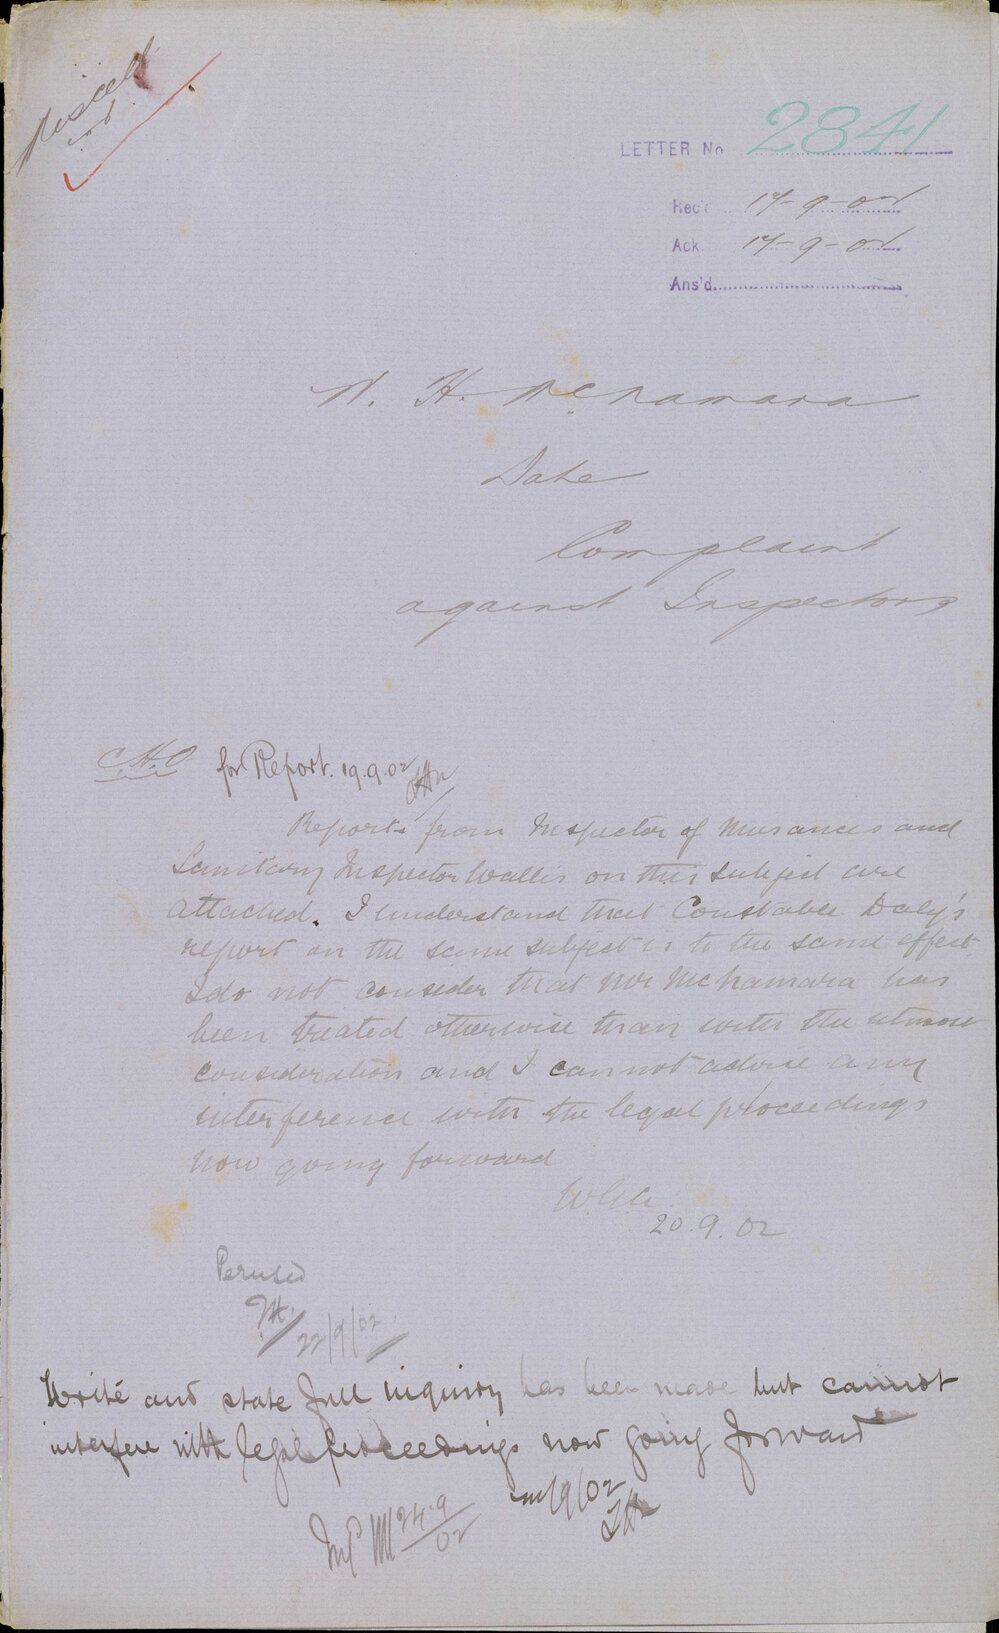 LETTER No 2841
Rec'd 17-9-02
Ack. 17-9-02
Ans'd
N. H. McNamara
Date
Complaint
against Inspectors
C.H.O for Report. 19.9.02
Reports from Inspector of Nuisances and
Sanitary Inspector Waller on this subject are
attached. I understand that Constable Daly's
report on the same subject is to the same effect.
I do not consider that Mr McNamara has
been treated otherwise than with the utmost
consideration and I cannot advise any
interference with the legal proceedings
now going forward
20.9.02
Perused
22/9/02
Write and state full inquiry has been made but cannot
interfere with legal proceedings now going forward
/9/02
24.9
02